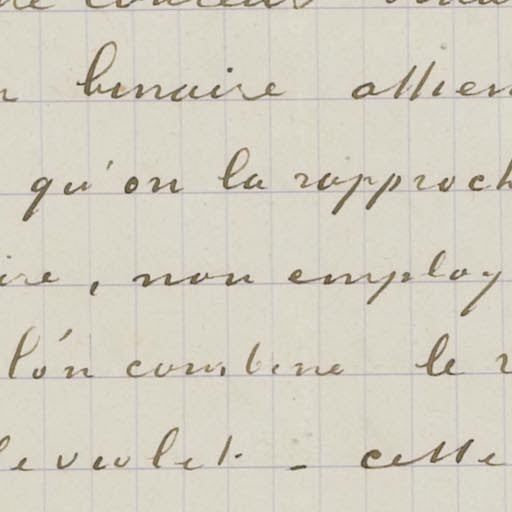 binaire attien
qu'on la rapproch
ire, non employ
l'on combine le
le violet - cette